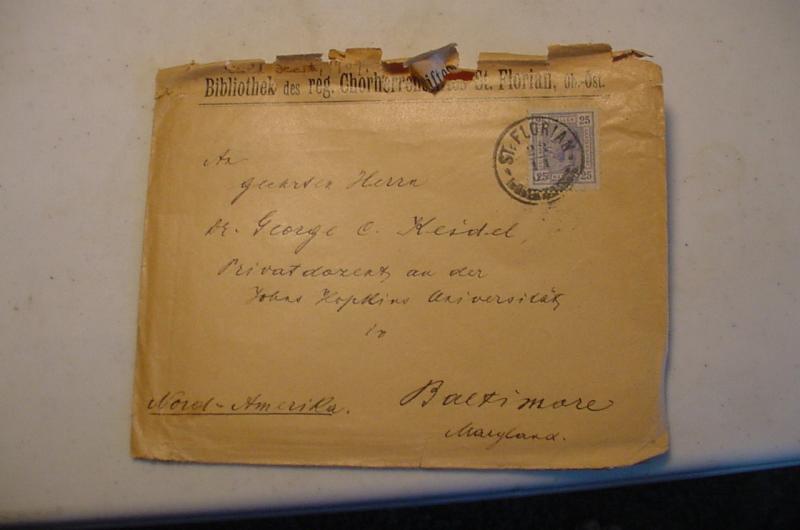 Bibliothek des reg. Chorherrenstiftes St. Florian, Ob.-Öst.
25
ST. FLORIAN
25 25
An
geehrten Herrn
Dr. George C. Keidel,
Privatdozent an der
Johns Hopkins Universität,
in
Baltimore
Nord-Amerika.
Maryland.